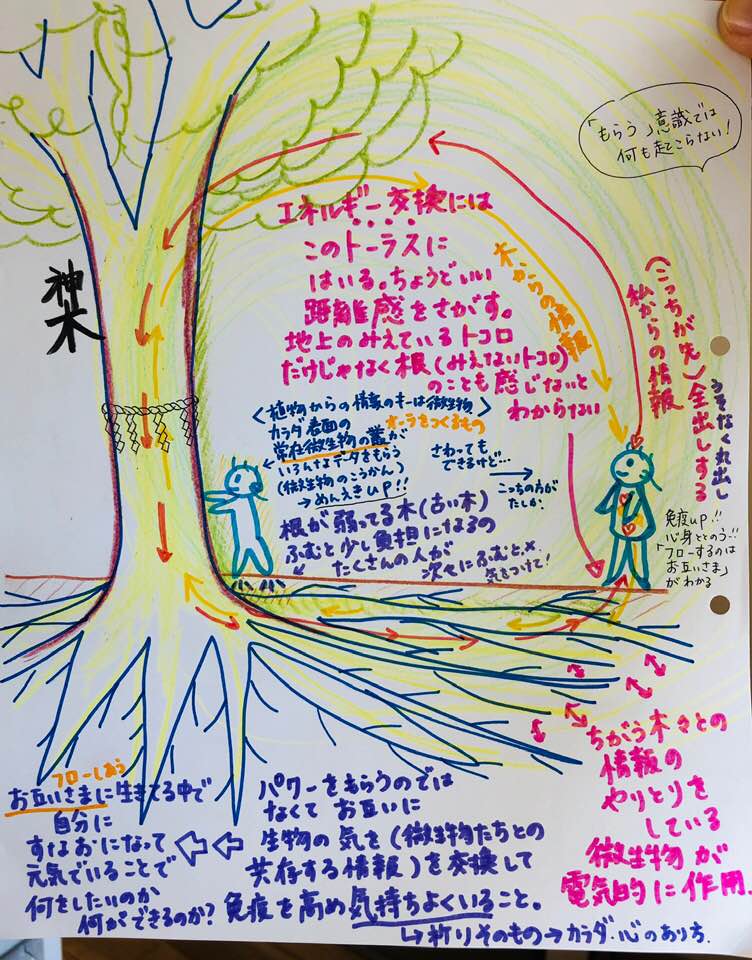 「もらう」意識では
何も起てこらない!
エネルギー交換には
このトーラスに
はいる。ちょうどいい
距離感をさがす。
地上のみえているトコロ
だけじゃなく根(みえないトコロ)
のことも感じないと
わからない
木からの情報
(こっちが先)
私からの情報
全出しする
うそなく丸出し
神木
<植物からの情報のキーは微生物>
オーラをつくるもの
カラダ表面の
常在微生物の叢が
いろんなデータをもらう
(微生物のこうかん)
→めんえきUP!!
さわっても
できるけど…
→
こっちの方が
たしか
根が弱ってる木(古い木)
ふむと少し負担になるの
たくさんの人が
次々にふむと✗
気をつけて!
免疫up!!
心身ととのう…!!
「フローするのは
お互いさま」
がわかる
ちがう木々との
情報の
やりとりを
している
微生物が
電気的に作用.
パワーをもらうのでは
なくてお互いに
生物の気を(微生物たちとの
共存する情報)を交換して
免疫を高め気持ちよくいること。
→祈りそのもの→カラダ・心のあり方.
フローしあう
お互いさまに生きてる中で
自分に
すなおになって
元気でいることで
何をしたいのか
何ができるのか?